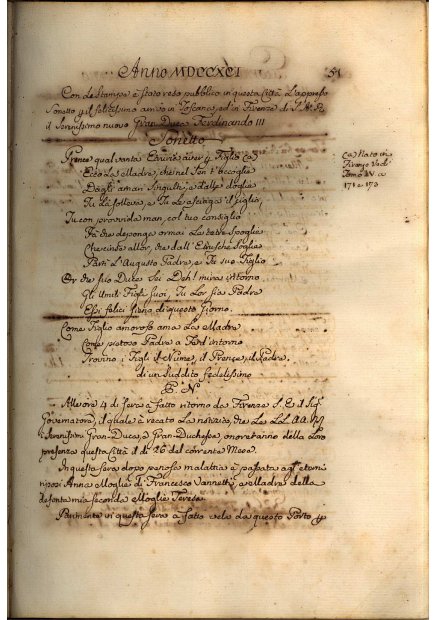 Anno MDCCXCI
51
Con le Stampe è stato reso pubblico in questa Città l'appresso
Sonetto p il felicissimo arrivo in Toscana, ed in Firenze di S. A. R.
il Serenissimo nuovo Gran Duca Ferdinando III
Sonetto
Prence qual vanta Etruria aver p Figlio (a
Ecco la Madre, che nel Sen t'accoglie
Dagli amari singulti, e dalle doglie
Tu la solleva, e Tu le asciuga il ciglio
Tu con provvida man, col tuo consiglio
Fà che deponga ormai le tetre spoglie
Che cinse allor, che dall'Etrusche Soglie
Partì l'Augusto Padre, e Tu suo Figlio
Or che suo Duce Sei Deh! mira intorno
Gli Umili Figli suoi, Tu Lor sia Padre
E di felici sieno di questo giorno.
Come Figlio amoroso ama la Madre
Come pietoso Padre a Te d'intorno
Trovino i Figli il Nume, il Prence, il Padre.
di un Suddito fedelissimo
(a Nato in
Firenze Vedi
Tomo IV a
171 e 173
P. N
Alle ore 4 di sera à fatto ritorno da Firenze S. E. il Sig.
Governatore, il quale à recato la notizia, che le LL. AA. RR.
i Serenissimi Gran-Duca, e Gran-Duchessa, onoreranno della loro
presenza questa Città il dì 26 del corrente Mese.
In questa sera dopo penosa malattia è passata agl'eterni
riposi Anna Moglie di Francesco Vannetti, e Madre della
defonta mia seconda Moglie Teresa.
Parimente in questa sera à fatto vela da questo Porto p